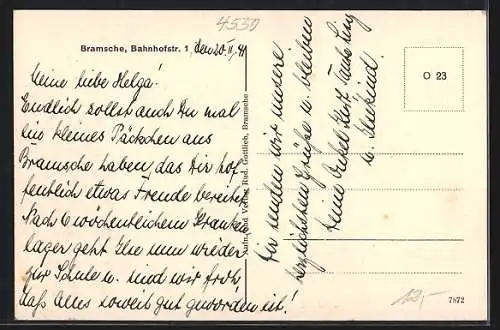 4530
Bramsche, Bahnhofstr. 1, den 20. II. 41
Meine liebe Helga!
Endlich sollst auch Du mal
ein kleines Päckchen aus
Bramsche haben, das Dir hof-
fentlich etwas Freude bereitet
Nach 6 wöchentlichem Kranken
lager geht Else nun wieder
zur Schule u. sind wir froh,
daß Alles soweit gut geworden ist!
Aufn. und Verlag Rud. Gottlieb, Bramsche
Dir senden wir unsere
herzlichsten Grüße u. bleiben
Deine Onkel Tante
u.
O 23
12,-
7872